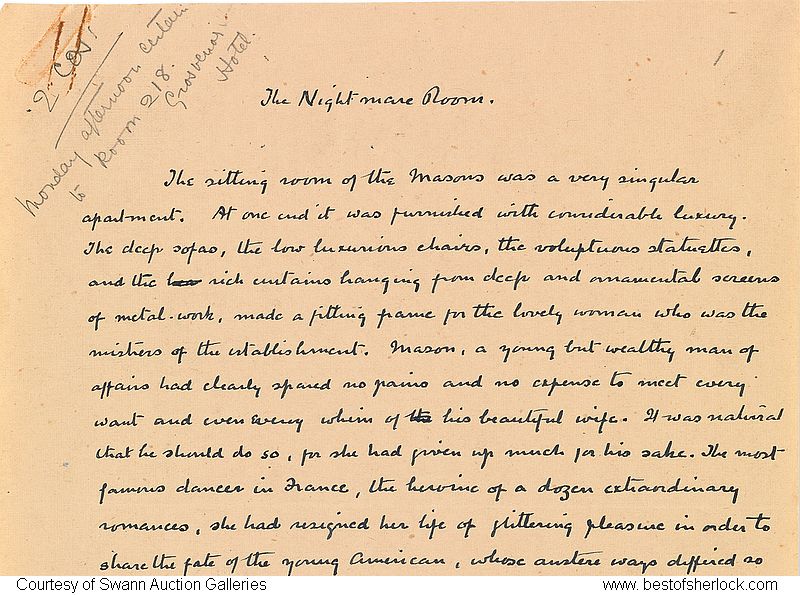 2 Cos!
Monday afternoon certain
to Room 218.
Grosvenor
Hotel.
1
The Nightmare Room.
The sitting room of the Masons was a very singular
apartment. At one end it was furnished with considerable luxury.
The deep sofas, the low luxurious chairs, the voluptuous statuettes,
and the rich curtains hanging from deep and ornamental screens
of metal-work, made a fitting frame for the lovely woman who was the
mistress of the establishment. Mason, a young but wealthy man of
affairs had clearly spared no pains and no expense to meet every
want and even every whim of his beautiful wife. It was natural
that he should do so, for she had given up much for his sake. The most
famous dancer in France, the heroine of a dozen extraordinary
romances, she had resigned her life of glittering pleasure in order to
share the fate of the young American, whose austere ways differed so
Courtesy of Swann Auction Galleries
www.bestofsherlock.com